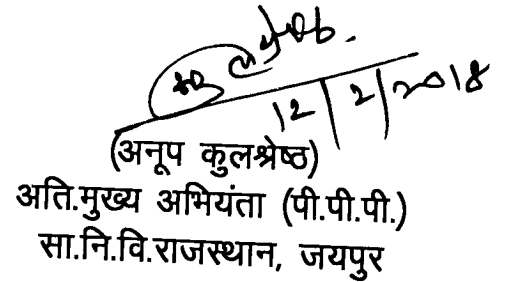 12/2/2018
(अनूप कुलश्रेष्ठ)
अति.मुख्य अभियंता (पी.पी.पी.)
सा.नि.वि.राजस्थान, जयपुर